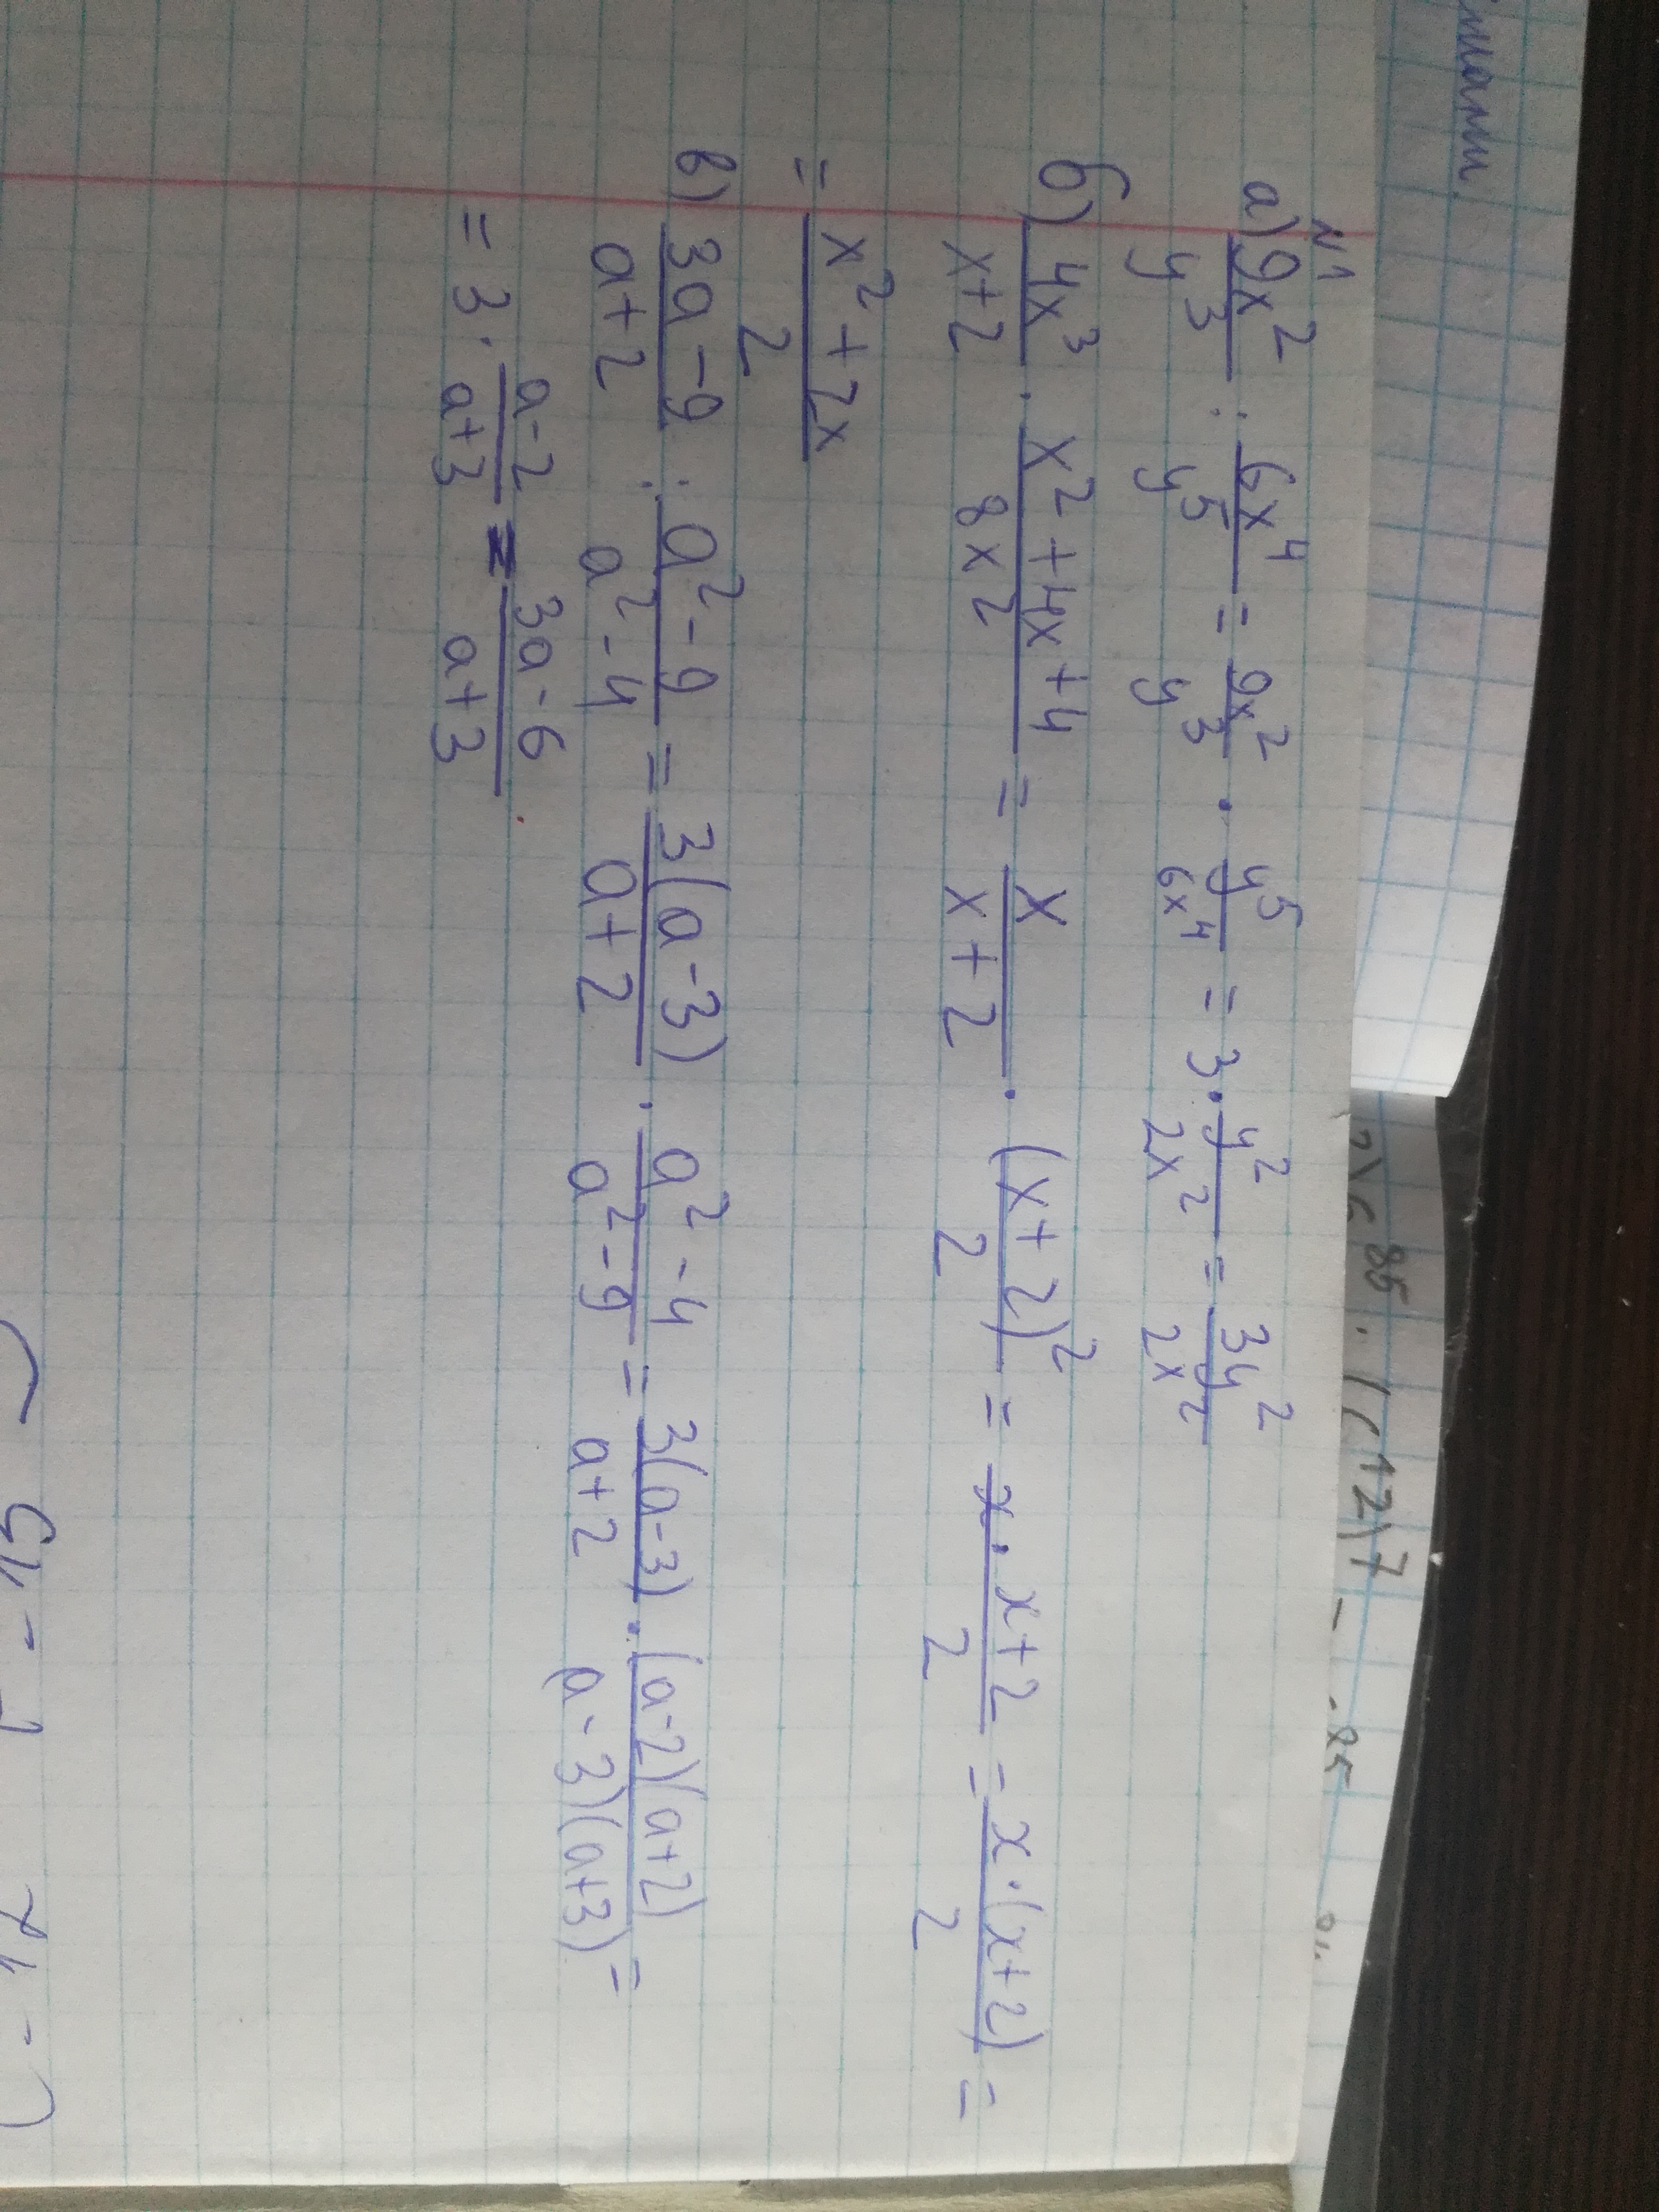 №1
а) 9x²/y³ : 6x⁴/y⁵ = 9x²/y³ · y⁵/6x⁴ = 3 · y²/2x² = 3y²/2x²
б) 4x³/x+2 · x²+4x+4/8x² = x/x+2 · (x+2)²/2 = x · x+2/2 = x·(x+2)/2 =
= x²+2x/2
в) 3a-9/a+2 : a²-9/a²-4 = 3(a-3)/a+2 · a²-4/a²-9 = 3(a-3)/a+2 · (a-2)(a+2)/(a-3)(a+3) =
= 3 · a-2/a+3 = 3a-6/a+3